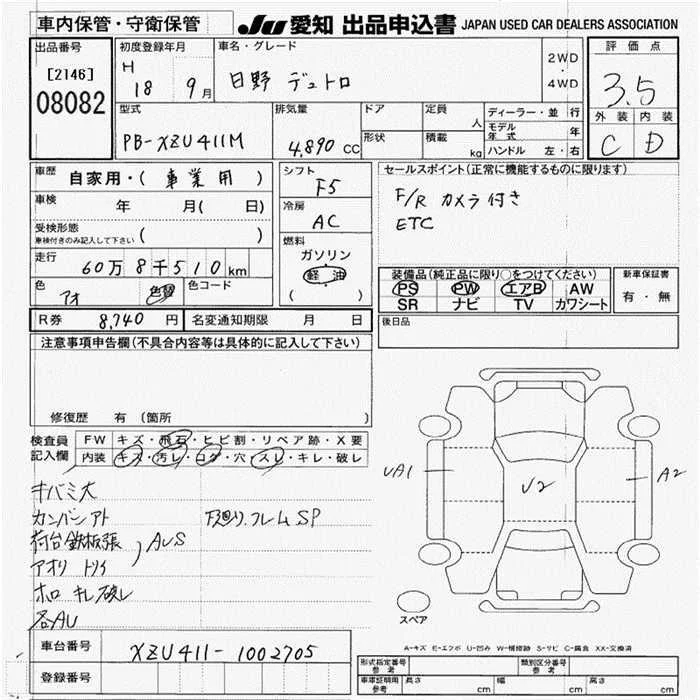 車内保管・守衛保管 JU 愛知 出品申込書 JAPAN USED CAR DEALERS ASSOCIATION
出品番号 初度登録年月 車名・グレード 評価点
[2146] H 18 9月 日野 デュトロ 2WD ・ 4WD 3.5
08082 型式 排気量 ドア 定員 人 ディーラー・並 行 外装 内装
PB-XZU411M 4,890 cc 形状 積載 kg モデル年式 年 C D
ハンドル 左・右
車歴 自家用・( 事業用 ) シフト F5 セールスポイント(正常に機能するものに限ります)
車検 年 月( 日) 冷房 AC F/R カメラ付き
受検形態 ( ) ETC
車検付きのみ記入して下さい
走行 60万8千510km 燃料 ガソリン 軽油 ( )
色 アオ 色替 色コード
装備品(純正品に限り○をつけてください) 新車保証書
PS PW エアB AW 有・無
SR ナビ TV カワシート
R券 8,740円 名変通知期限 月 日 後日品
注意事項申告欄(不具合内容等は具体的に記入して下さい)
修復歴 有 (箇所 )
検査員記入欄 FW キズ・飛石・ヒビ割・リペア跡・X要
内装 キズ・汚レ・コゲ・穴・スレ・キレ・破レ
キバミ大
カンバンアト 下廻り.フレームSP
荷台鉄板張 AUS
アオリ
ホロ キレ破レ
各AU
UA1 U2 A2
スペア
A-キズ E-エクボ U-凹み W-補修跡 S-サビ C-腐食 XX-交換済
車台番号 XZU411-1002705
登録番号
形式指定番号 参考 類別区分番号 参考
車車証明用 参考 長さ cm 幅 cm 高さ cm